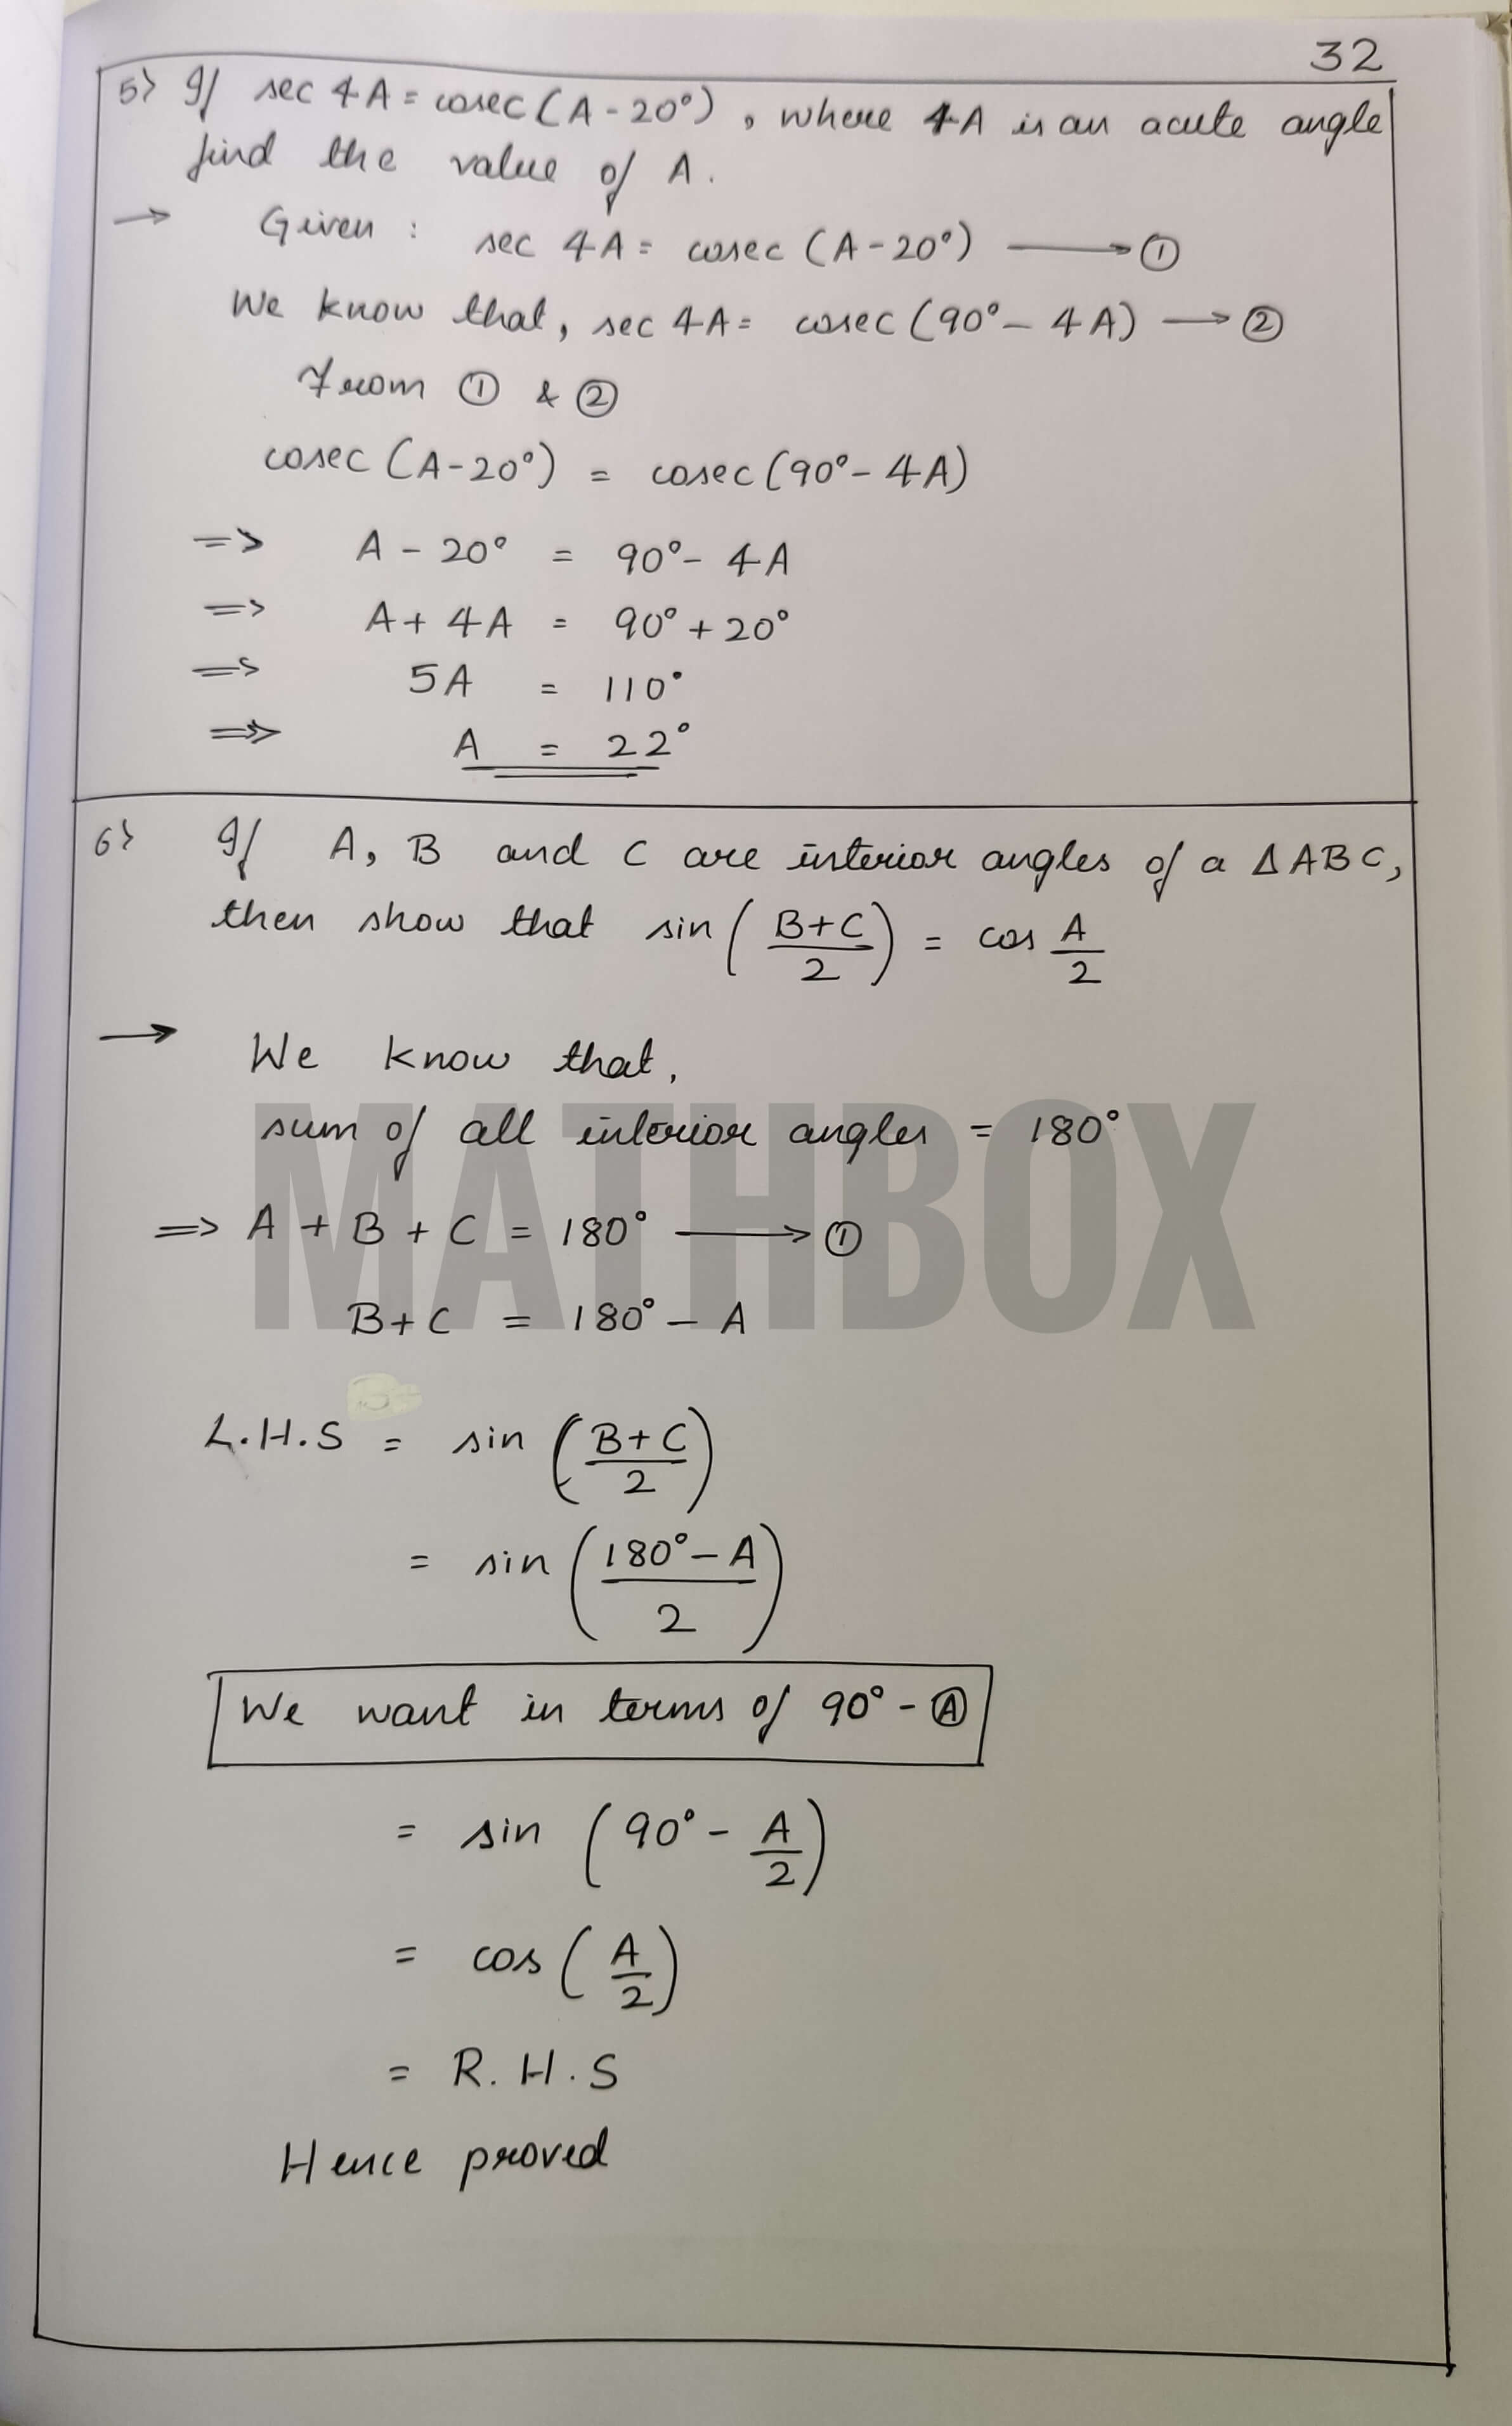 32
5> If sec 4A = cosec (A - 20°), where 4A is an acute angle
find the value of A.
→ Given : sec 4A = cosec (A - 20°) ⟶ ①
We know that, sec 4A = cosec (90° - 4A) → ②
From ① & ②
cosec (A - 20°) = cosec (90° - 4A)
=> A - 20° = 90° - 4A
=> A + 4A = 90° + 20°
=> 5A = 110°
=> A = 22°
6> If A, B and C are interior angles of a △ABC,
then show that sin (B+C/2) = cos A/2
→ We know that,
sum of all interior angles = 180°
MATHBOX
=> A + B + C = 180° ⟶ ①
B+C = 180° - A
L.H.S = sin (B+C/2)
= sin (180° - A/2)
We want in terms of 90° - Ⓐ
= sin (90° - A/2)
= cos (A/2)
= R.H.S
Hence proved